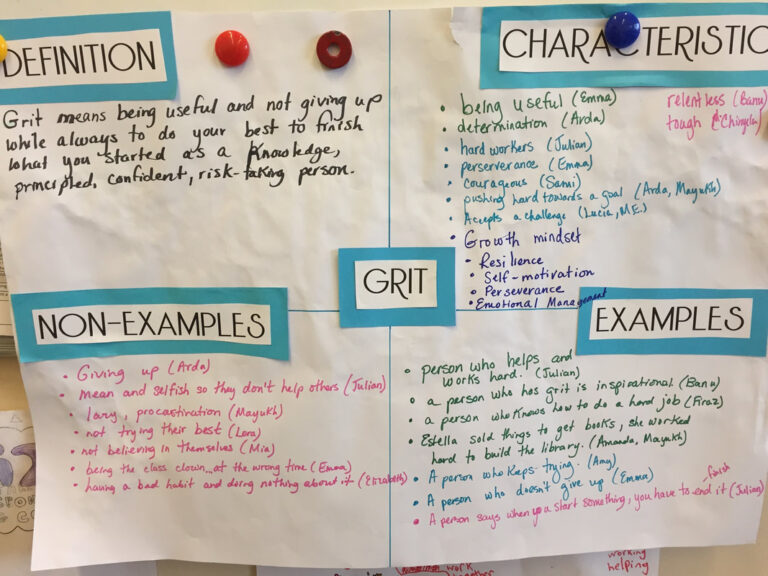 DEFINITION
Grit means being useful and not giving up
while always to do your best to finish
what you started as a Knowledge,
principled, confident, risk-taking person.
CHARACTERISTIC
• being useful (Emma)
• determination (Arda)
• hard workers (Julian)
• perserverance (Emma)
• courageous (Sami)
• pushing hard towards a goal (Arda, Mayukh)
• Accepts a challenge (Lucia, M.E.)
• Growth mindset
• Resilience
• Self-motivation
• Perseverance
• Emotional Management
relentless (Banu)
tough (Chingela)
GRIT
NON-EXAMPLES
• Giving up (Arda)
• mean and selfish so they don't help others (Julian)
• lazy, procastination (Mayukh)
• not trying their best (Lara)
• not believing in themselves (Mia)
• being the class clown...at the wrong time (Emma)
• having a bad habit and doing nothing about it (Elizabeth)
EXAMPLES
• person who helps and
works hard. (Julian)
• a person who has grit is inspirational (Banu)
• a person who knows how to do a hard job (Firaz)
• Estella sold things to get books, she worked
hard to build the library. (Amanda, Mayukh)
• A person who keps trying. (Amy)
• A person who doesn't give up (Emma)
finish
• A person says when you start something, you have to end it (Julian)
work
working
helping